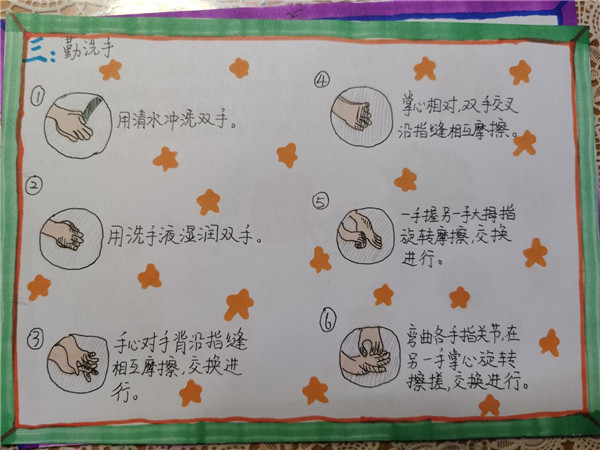 三:勤洗手
①
用清水冲洗双手。
②
用洗手液湿润双手。
③
手心对手背沿指缝
相互摩擦,交换进
行。
④
掌心相对,双手交叉
沿指缝相互摩擦。
⑤
一手握另一手大拇指
旋转摩擦,交换
进行。
⑥
弯曲各手指关节,在
另一手掌心旋转
擦搓,交换进行。